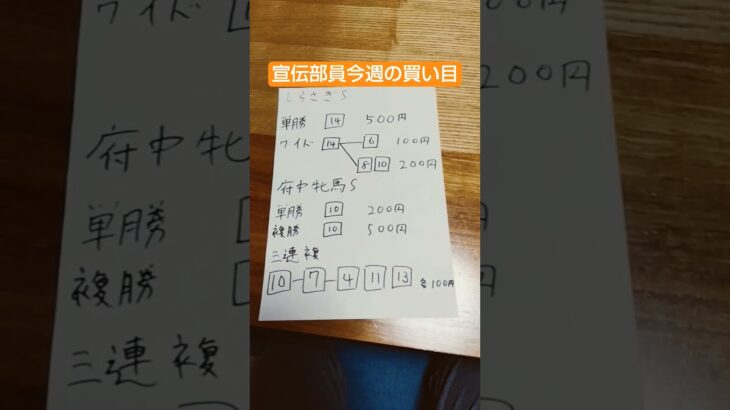 宣伝部員今週の買い目
しらさぎS
単勝 14 500円
ワイド 14 6 100円
8 10 200円
府中牝馬S
単勝 10 200円
複勝 10 500円
三連複
10-7-4 11 13 各100円
ワイド
200円
府中牝
単勝
複勝
三連複